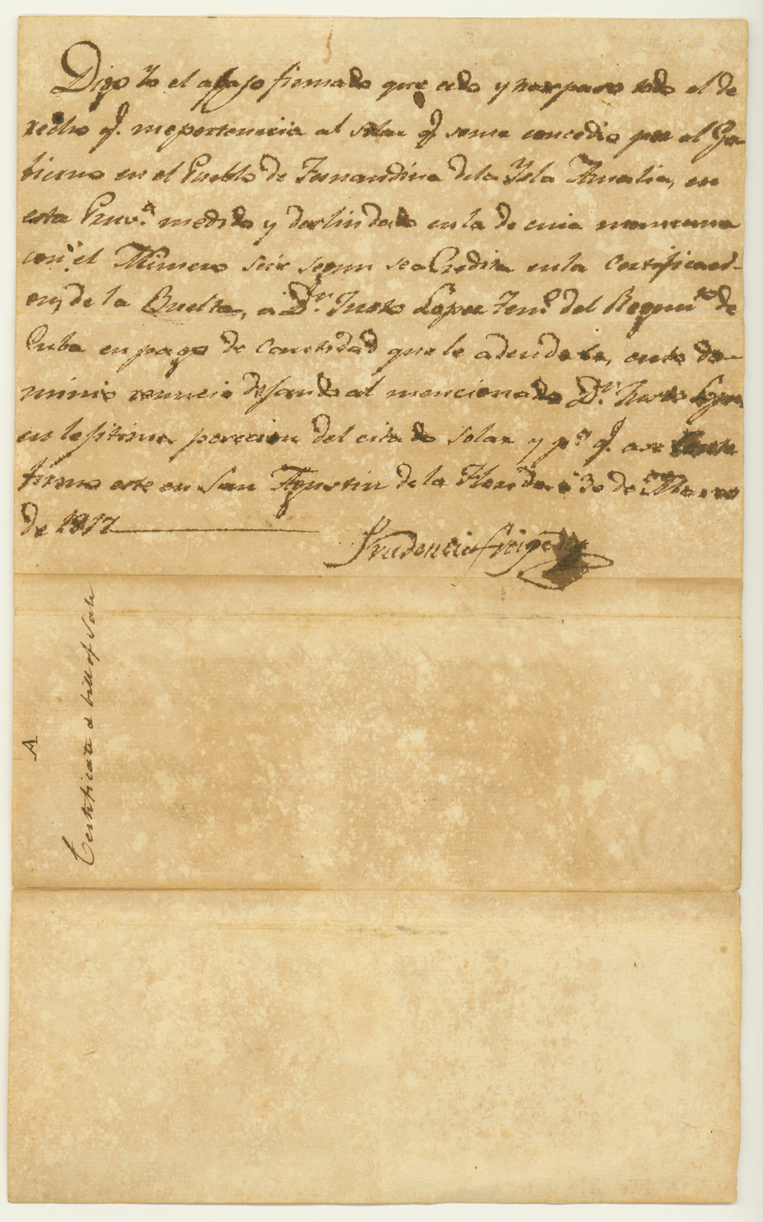 Digo Yo el abajo firmado que cedo y traspaso todo el de
recho q.e mepertenecia al solar q.e seme concedio por el Go
bierno en el Pueblo de Fernandina dela Ysla Amalia, en
esta Prov.a medido y deslindado enla de cuia manzana
con el Numero seis segun se acredita enla Certificaci-
on, de la Buelta, a D.n Justo Lopez Ten.te del Regim.to de
Cuba en pago de cantidad que le adeudaba, cuto do-
minio renuncio dejando al mencionado D.n Justo Lopez
en lesitima posecion del citado solar y p.a q.e asi Conste
firmo este en San Agustin de la Florida a 30 de Marzo
de 1817
Prudencio
A
Certificate & bill of Sale